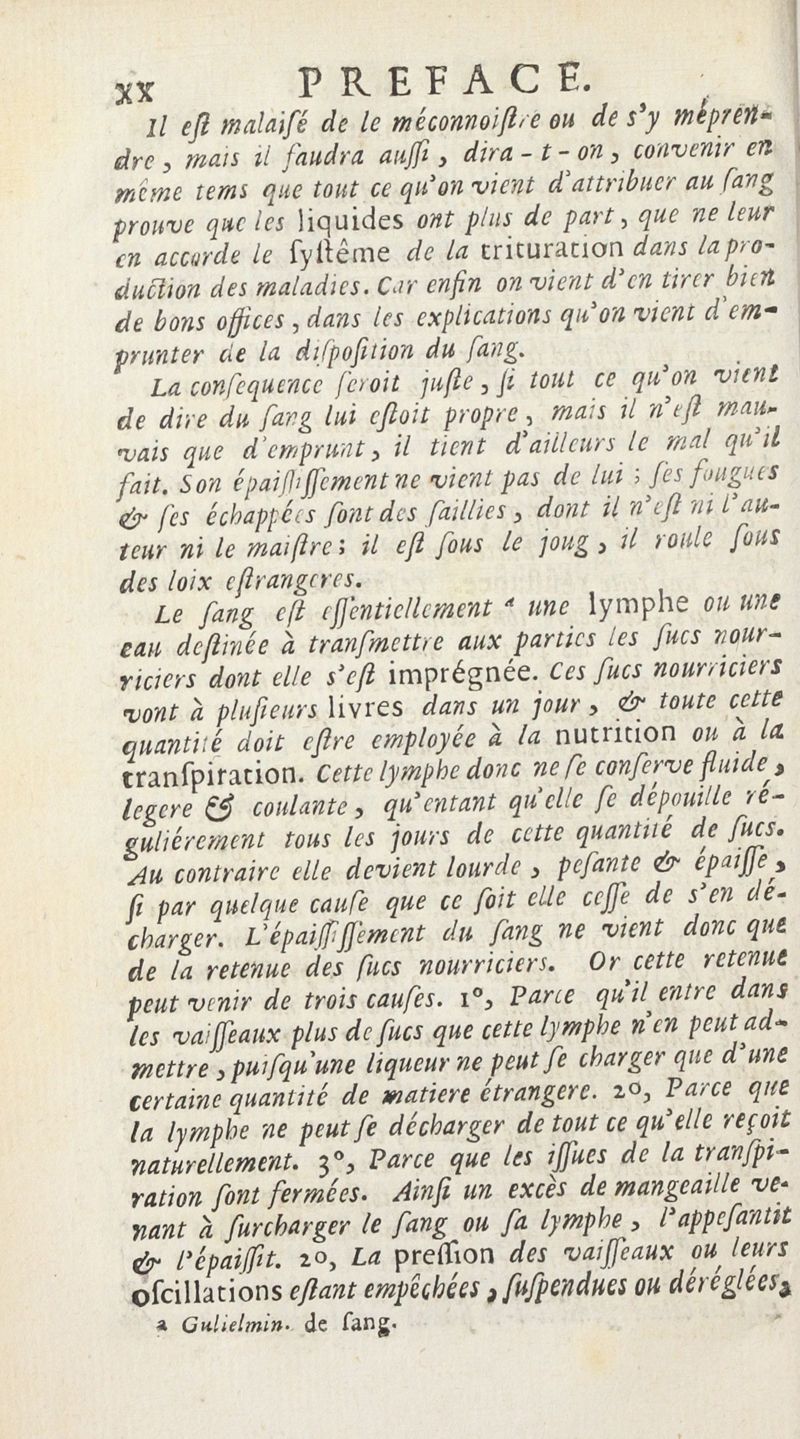 xx PREFACE.
Il eſt malaiſé de le méconnoiſtre ou de s'y mépren-
dre, mais il faudra auſſi, dira-t-on, convenir en
même tems que tout ce qu'on vient d'attribuer au ſang
prouve que les liquides ont plus de part, que ne leur
en accorde le ſyſtême de la trituration dans la pro-
duction des maladies. Car enfin on vient d'en tirer bien
de bons offices, dans les explications qu'on vient d'em-
prunter de la diſpoſition du ſang.
La conſequence ſeroit juſte, ſi tout ce qu'on vient
de dire du ſang lui eſtoit propre, mais il n'eſt mau-
vais que d'emprunt, il tient d'ailleurs le mal qu'il
fait. Son épaiſſiſſement ne vient pas de lui; ſes fougues
& ſes échappées ſont des ſaillies, dont il n'eſt ni l'au-
teur ni le maiſtre; il eſt ſous le joug, il roule ſous
des loix eſtrangeres.
Le ſang eſt eſſentiellement a une lymphe ou une
eau deſtinée à tranſmettre aux parties les ſucs nour-
riciers dont elle s'eſt imprégnée. Ces ſucs nourriciers
vont à pluſieurs livres dans un jour, & toute cette
quantité doit eſtre employée à la nutrition ou à la
tranſpiration. Cette lymphe donc ne ſe conſerve fluide,
legere & coulante, qu'entant qu'elle ſe dépouille ré-
guliérement tous les jours de cette quantité de ſucs.
Au contraire elle devient lourde, peſante & épaiſſe,
ſi par quelque cauſe que ce ſoit elle ceſſe de s'en dé-
charger. L'épaiſſiſſement du ſang ne vient donc que
de la retenue des ſucs nourriciers. Or cette retenue
peut venir de trois cauſes. 1º, Parce qu'il entre dans
les vaiſſeaux plus de ſucs que cette lymphe n'en peut ad-
mettre, puiſqu'une liqueur ne peut ſe charger que d'une
certaine quantité de matiere étrangere. 2º, Parce que
la lymphe ne peut ſe décharger de tout ce qu'elle reçoit
naturellement. 3º, Parce que les iſſues de la tranſpi-
ration ſont fermées. Ainſi un excès de mangeaille ve-
nant à ſurcharger le ſang ou ſa lymphe, l'appeſantit
& l'épaiſſit. 2º, La preſſion des vaiſſeaux ou leurs
oſcillations eſtant empêchées, ſuſpendues ou déréglées,
a Gulielmin. de ſang.